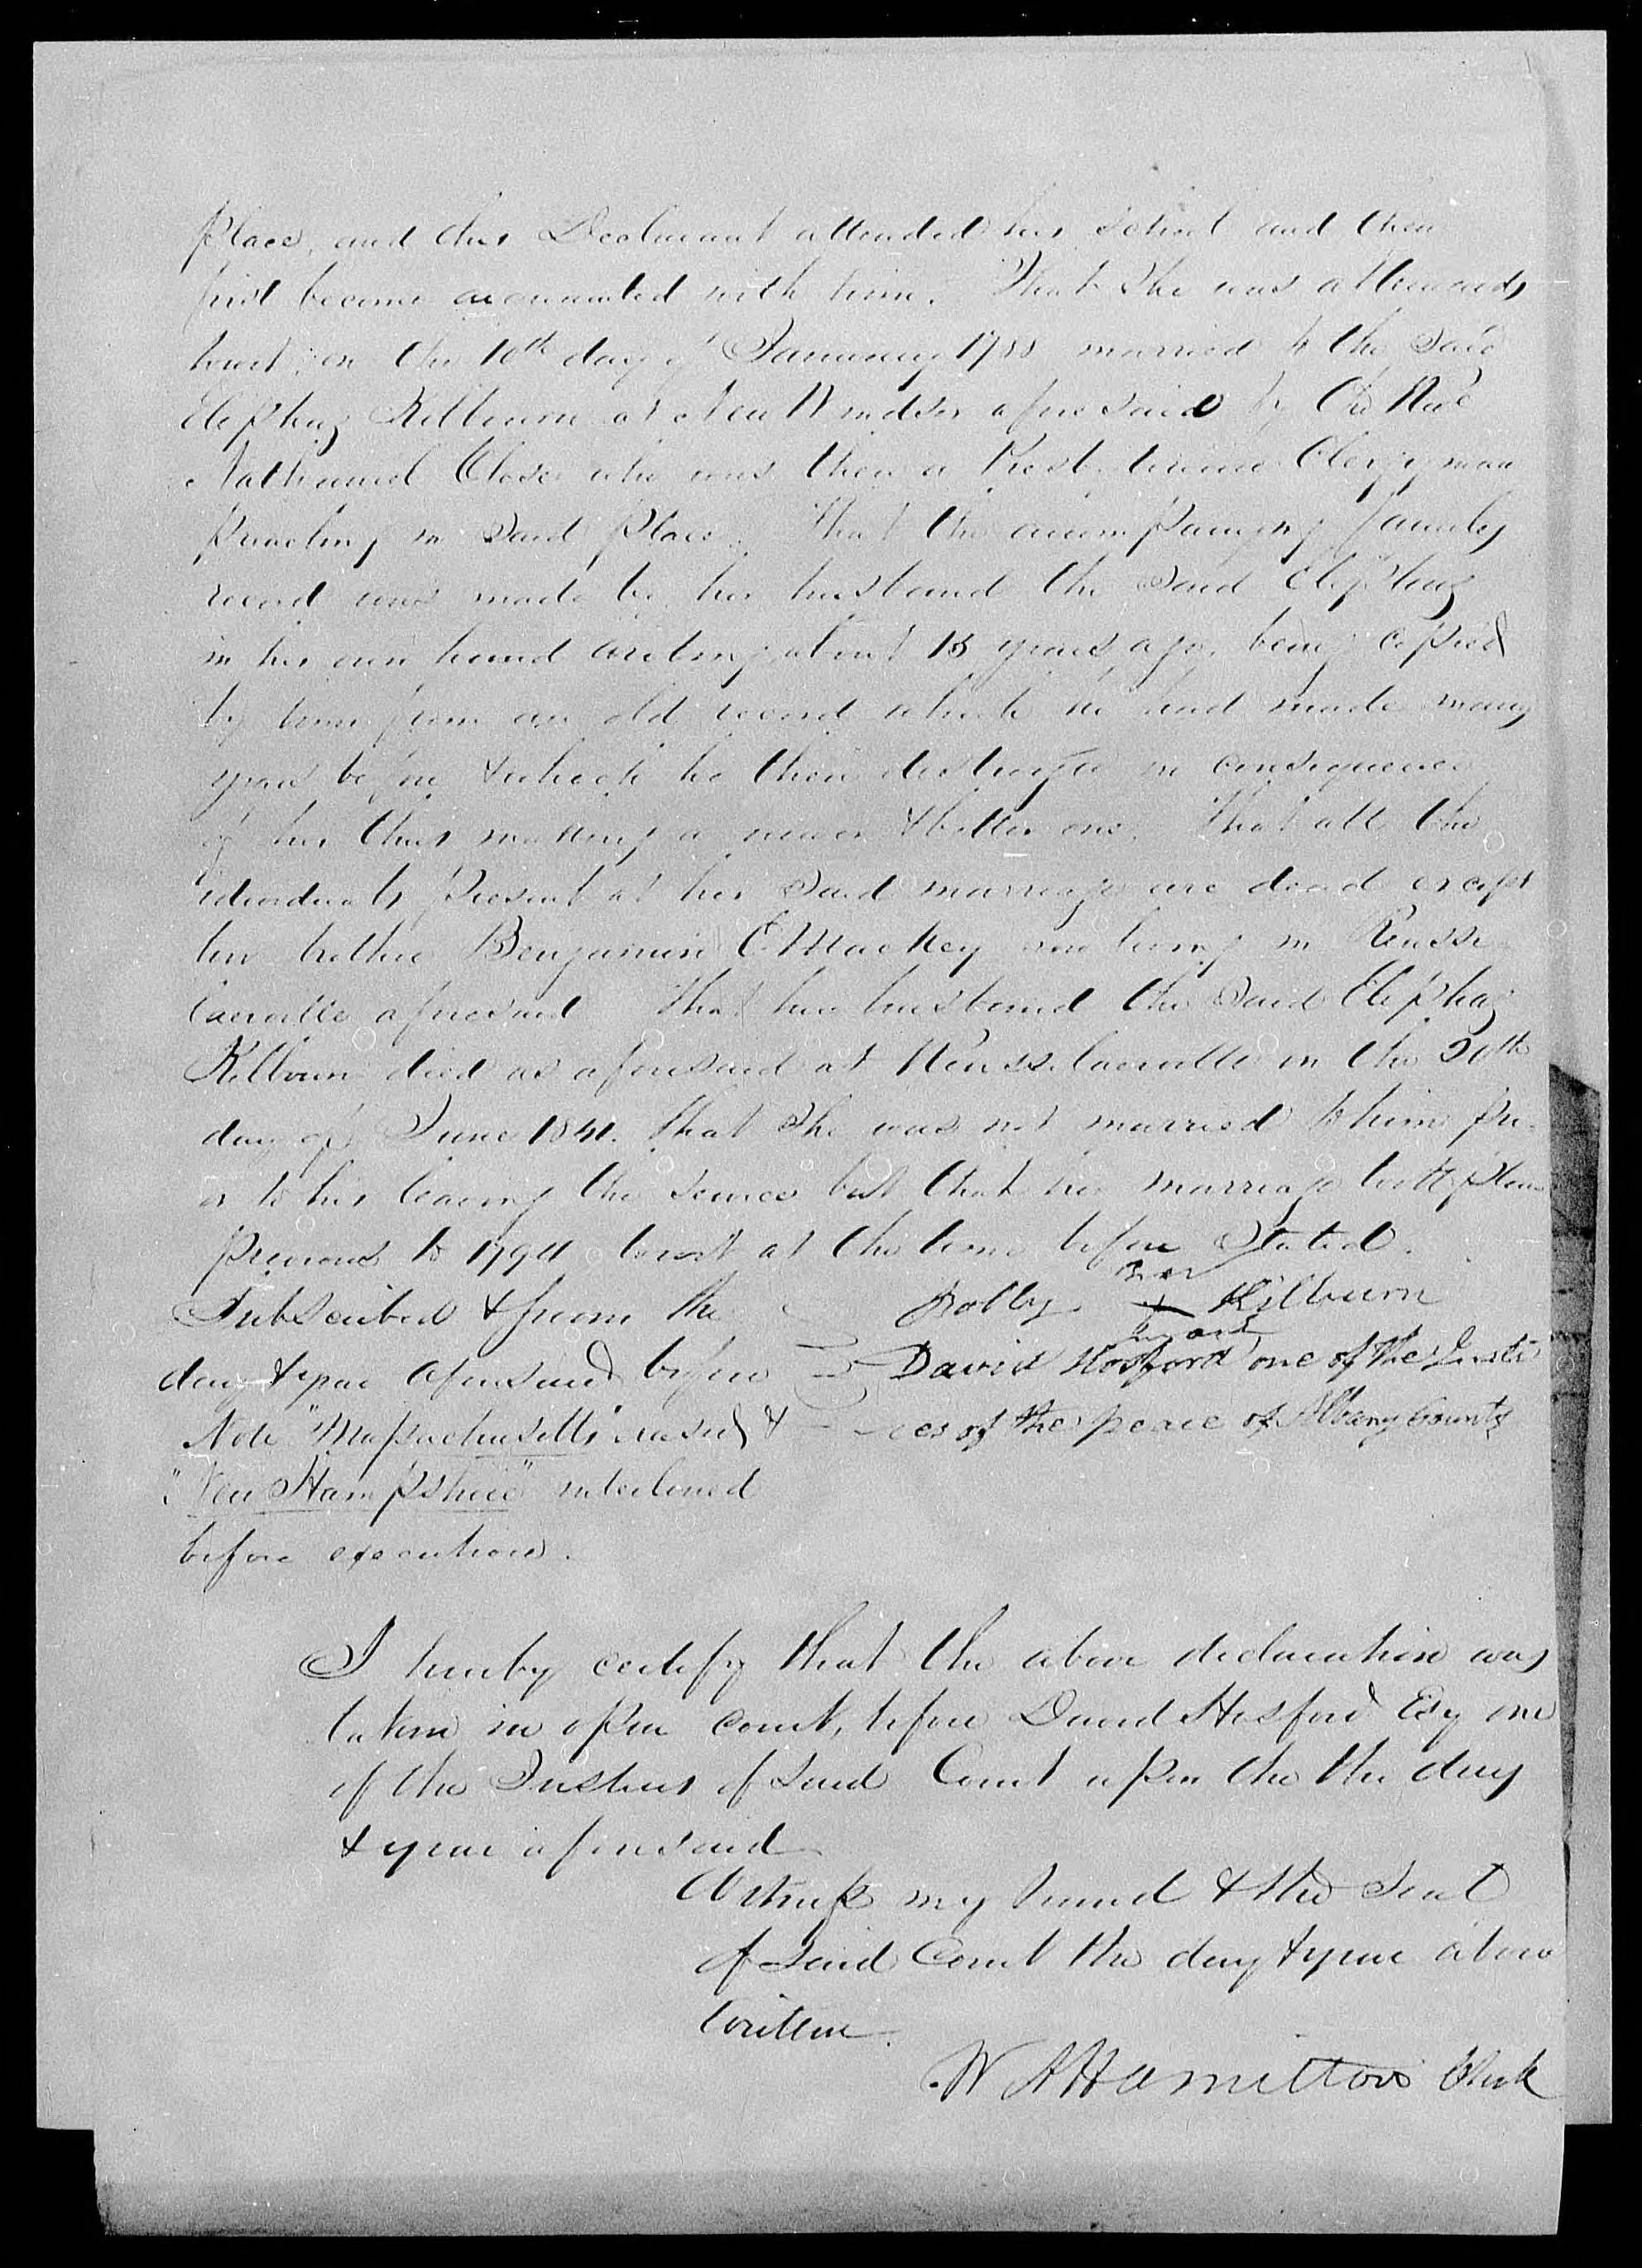 place, and this Declarant attended his school and then
first became acquainted with him. That she was afterwards
to wit, on the 10th day of January 1788 married to the said
Eliphaz Kilbourn at New Windsor aforesaid by the Revd
Nathaniel Close who was then a Presbyterian Clergyman
preaching in said place. That the accompanying family
record was made by her husband the said Eliphaz
in his own hand writing about 15 years ago, being copied
by him from an old record which he had made many
years before & which he then destroyed in consequence
of his thus making a newer & better one. That all the
individuals present at her said marriage are dead except
her brother Benjamin C. Mackey now living in Rensse
laerville aforesaid That her husband the said Eliphaz
Kilbourn died as aforesaid at Rensselaerville on the 20th
day of June 1841. That she was not married to him pri-
or to his leaving the service but that her marriage took place
previous to 1794 to wit at the time before stated.
Subscribed & sworn the
day & year aforesaid before
her
Dolly + Kilburn
mark
David Hosford one of the Justi
ces of the peace of Albany County
Note "Massachusetts" erased &
"New Hampshire" interlined
before execution.
I hereby certify that the above declaration was
taken in open court, before David Hosford Esq one
of the Justices of said Court upon the the day
& year aforesaid
Witness my hand & the Seal
of said Court the day & year above
written.
W A Hamilton Clerk